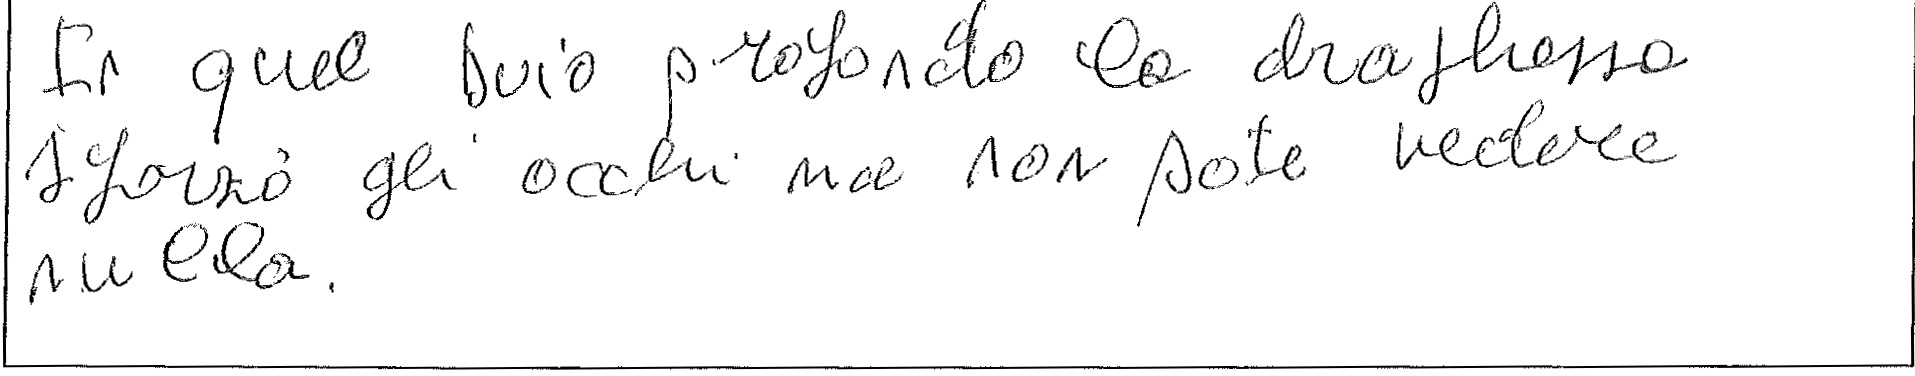 In quel buio profondo la draghessa
sforzò gli occhi ma non pote vedere
nulla.